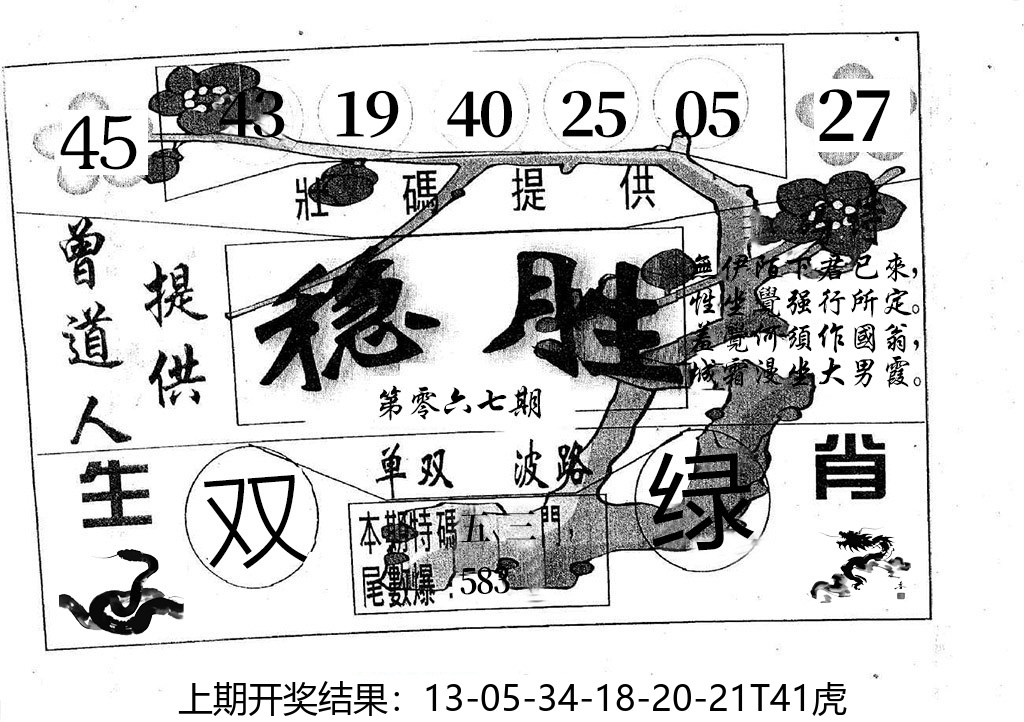 45 43 19 40 25 05 27
壯碼提供
曾道人
提供
稳胜
第零六七期
特
無伊陌下若已來，
性坐覺强行所定。
羞覺何須作國翁，
城霜漫坐大男霞。
单双 波路
生肖
双
绿
本期特碼五、三門，
尾數爆：583
上期开奖结果：13-05-34-18-20-21T41虎